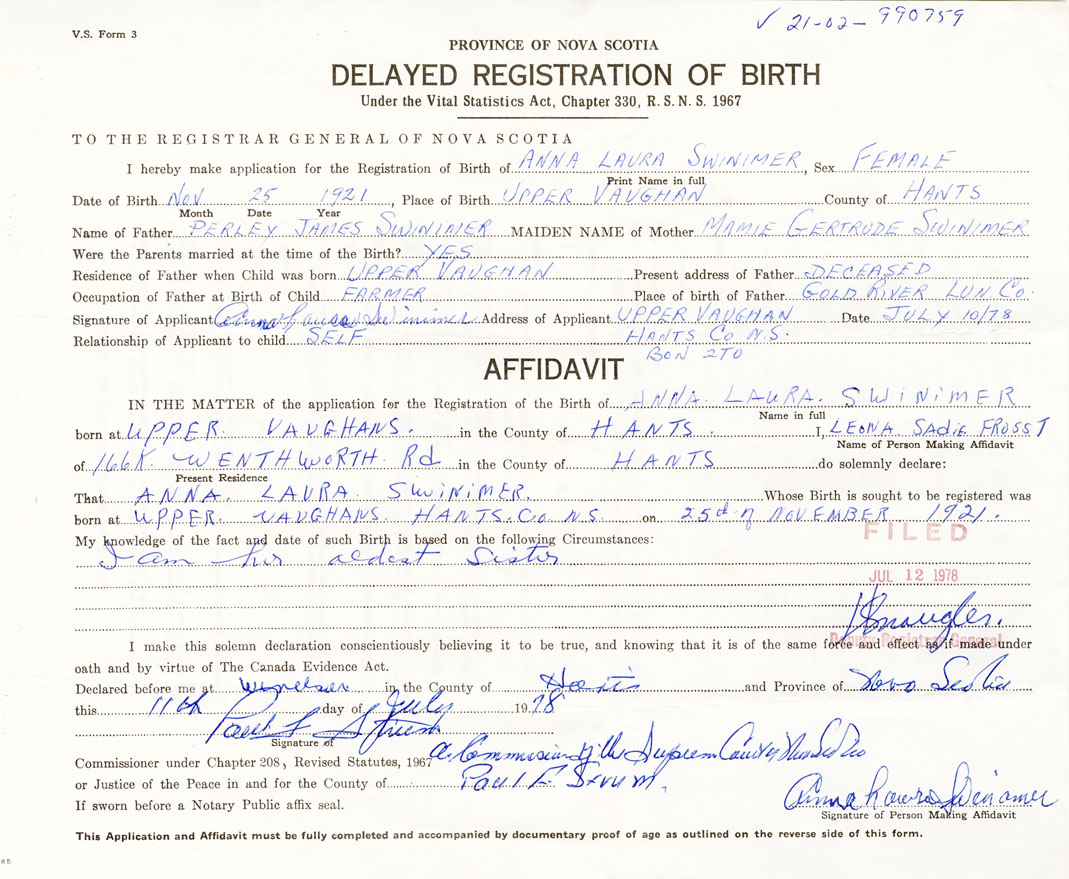 ✓ 21-02-990759
V.S. Form 3
PROVINCE OF NOVA SCOTIA
DELAYED REGISTRATION OF BIRTH
Under the Vital Statistics Act, Chapter 330, R.S.N.S. 1967
TO THE REGISTRAR GENERAL OF NOVA SCOTIA
I hereby make application for the Registration of Birth of ANNA LAURA SWINIMER, Sex FEMALE
Print Name in full
Date of Birth NOV 25 1921, Place of Birth UPPER VAUGHAN County of HANTS
Month Date Year
Name of Father PERLEY JAMES SWINIMER MAIDEN NAME of Mother MAMIE GERTRUDE SWINIMER
Were the Parents married at the time of the Birth? YES
Residence of Father when Child was born UPPER VAUGHAN Present address of Father DECEASED
Occupation of Father at Birth of Child FARMER Place of birth of Father GOLD RIVER LUN CO.
Signature of Applicant Anna Laura Swinimer Address of Applicant UPPER VAUGHAN Date JULY 10/78
Relationship of Applicant to child SELF HANTS CO N.S.
BON 2TO
AFFIDAVIT
IN THE MATTER of the application for the Registration of the Birth of ANNA. LAURA. SWINIMER
Name in full
born at UPPER. VAUGHANS. in the County of HANTS. I, LEONA SADIE FROSST
Name of Person Making Affidavit
of 166K WENTHWORTH Rd in the County of HANTS do solemnly declare:
Present Residence
That ANNA. LAURA. SWINIMER. Whose Birth is sought to be registered was
born at UPPER. VAUGHANS. HANTS. Co. N.S. on 25th of NOVEMBER 1921.
My knowledge of the fact and date of such Birth is based on the following Circumstances:
FILED
I am her oldest Sister
JUL 12 1978
Deputy Registrar General
I make this solemn declaration conscientiously believing it to be true, and knowing that it is of the same force and effect as if made under
oath and by virtue of The Canada Evidence Act.
Declared before me at Windsor in the County of Hants and Province of Nova Scotia
this 11th day of July 1978.
Signature of
Commissioner under Chapter 208, Revised Statutes, 1967 A Commissioner of the Supreme Court of Nova Scotia
or Justice of the Peace in and for the County of Paul F. Strum.
If sworn before a Notary Public affix seal.
Anna Laura Swinamer
Signature of Person Making Affidavit
This Application and Affidavit must be fully completed and accompanied by documentary proof of age as outlined on the reverse side of this form.
85